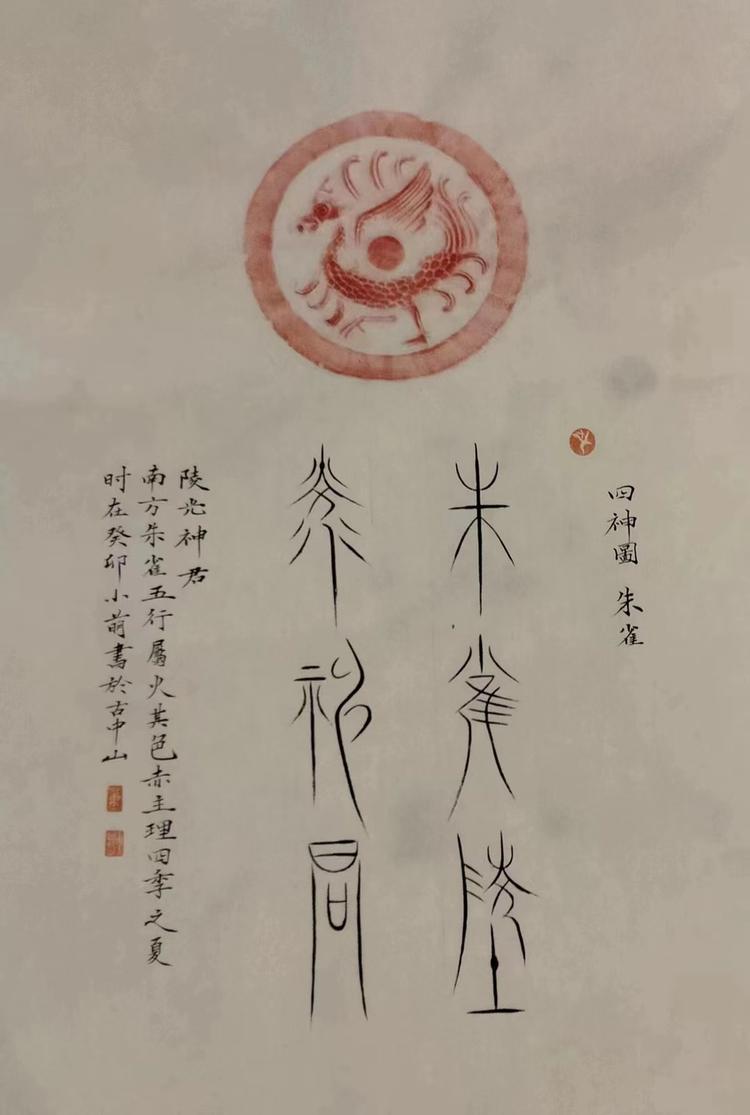 四神圖 朱雀
朱雀陵
光神君
陵光神君
南方朱雀五行屬火其色赤主理四季之夏
时在癸卯小書於古中山